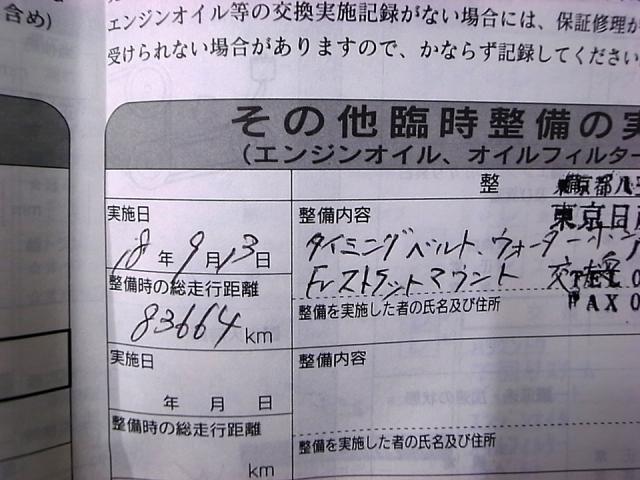 含め)
エンジンオイル等の交換実施記録がない場合には、保証修理が
受けられない場合がありますので、かならず記録してください
その他臨時整備の実
(エンジンオイル、オイルフィルター
整
東京都八王
東京日産
実施日
整備内容
18年9月13日
タイミングベルト、ウォーターポンプ
Frストラットマウント 交換
TEL 0
FAX 0
整備時の総走行距離
83664 km
整備を実施した者の氏名及び住所
実施日
整備内容
年 月 日
整備時の総走行距離
km
整備を実施した者の氏名及び住所